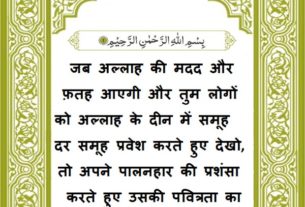 بِسْمِ اللهِ الرَّحْمٰنِ الرَّحِيْمِ
जब अल्लाह की मदद और
फ़तह आएगी और तुम लोगों
को अल्लाह के दीन में समूह
दर समूह प्रवेश करते हुए देखो,
तो अपने पालनहार की प्रशंसा
करते हूए उसकी पवित्रता का